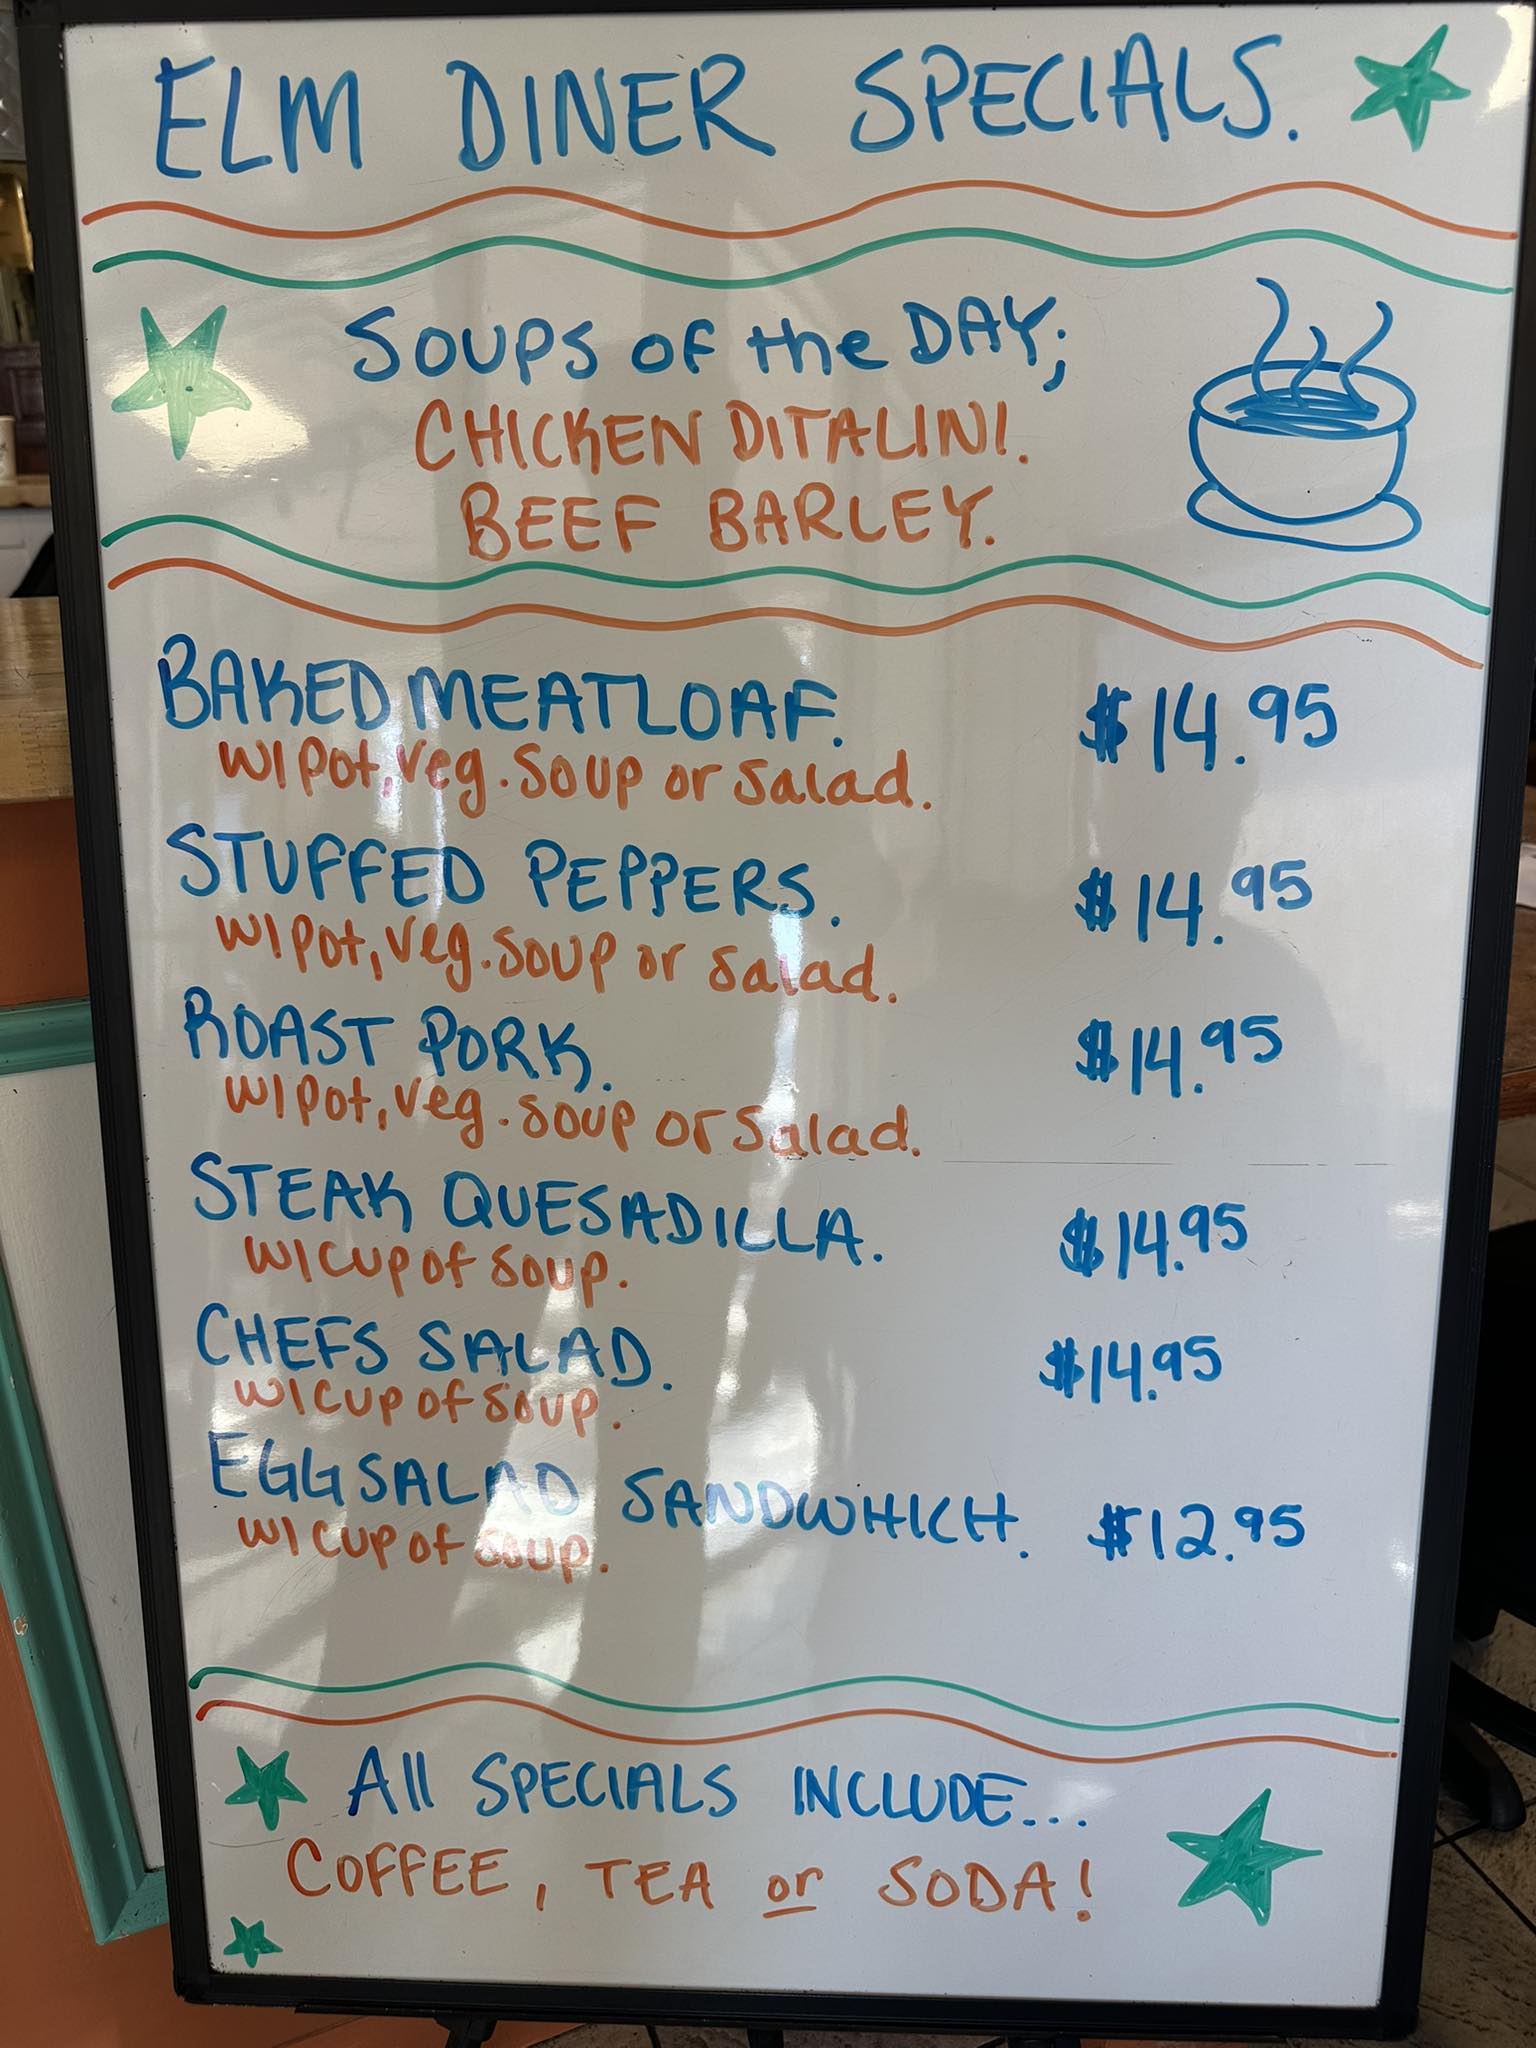 ELM DINER SPECIALS.
SOUPS OF the DAY;
CHICKEN DITALINI.
BEEF BARLEY.
BAKED MEATLOAF. $14.95
W/ Pot, Veg. Soup or Salad.
STUFFED PEPPERS. $14.95
W/ Pot, Veg. Soup or Salad.
ROAST PORK. $14.95
W/ Pot, Veg. Soup or Salad.
STEAK QUESADILLA. $14.95
W/ Cup of Soup.
CHEFS SALAD. $14.95
W/ Cup of Soup.
EGG SALAD SANDWHICH. $12.95
W/ Cup of Soup.
All SPECIALS INCLUDE...
COFFEE, TEA or SODA!